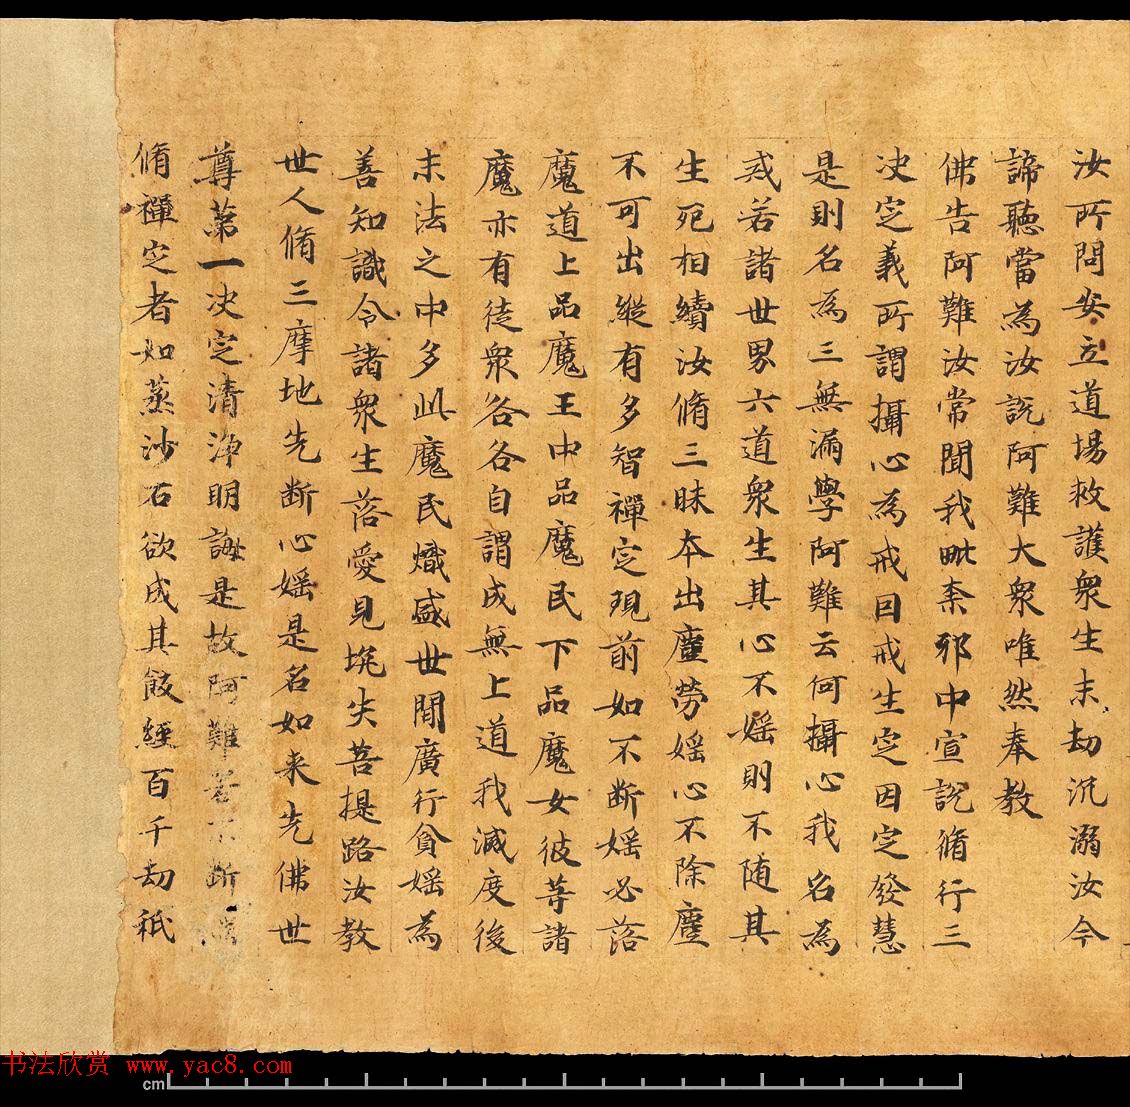 汝所問安立道場救護衆生末劫沉溺汝今
諦聽當為汝說阿難大衆唯然奉教
佛告阿難汝常聞我毗柰耶中宣說脩行三
决定義所謂攝心為戒因戒生定因定發慧
是則名為三無漏學阿難云何攝心我名為
戒若諸世界六道衆生其心不婬則不随其
生死相續汝脩三昧本出塵勞婬心不除塵
不可出縱有多智禪定現前如不断婬必落
魔道上品魔王中品魔民下品魔女彼等諸
魔亦有徒衆各各自謂成無上道我滅度後
末法之中多此魔民熾盛世間廣行貪婬為
善知識令諸衆生落愛見坑失菩提路汝教
世人脩三摩地先断心婬是名如来先佛世
尊苐一决定清淨明誨是故阿難若不断婬
脩禪定者如蒸沙石欲成其飯經百千劫秖
书法欣赏 www.yac8.com
cm